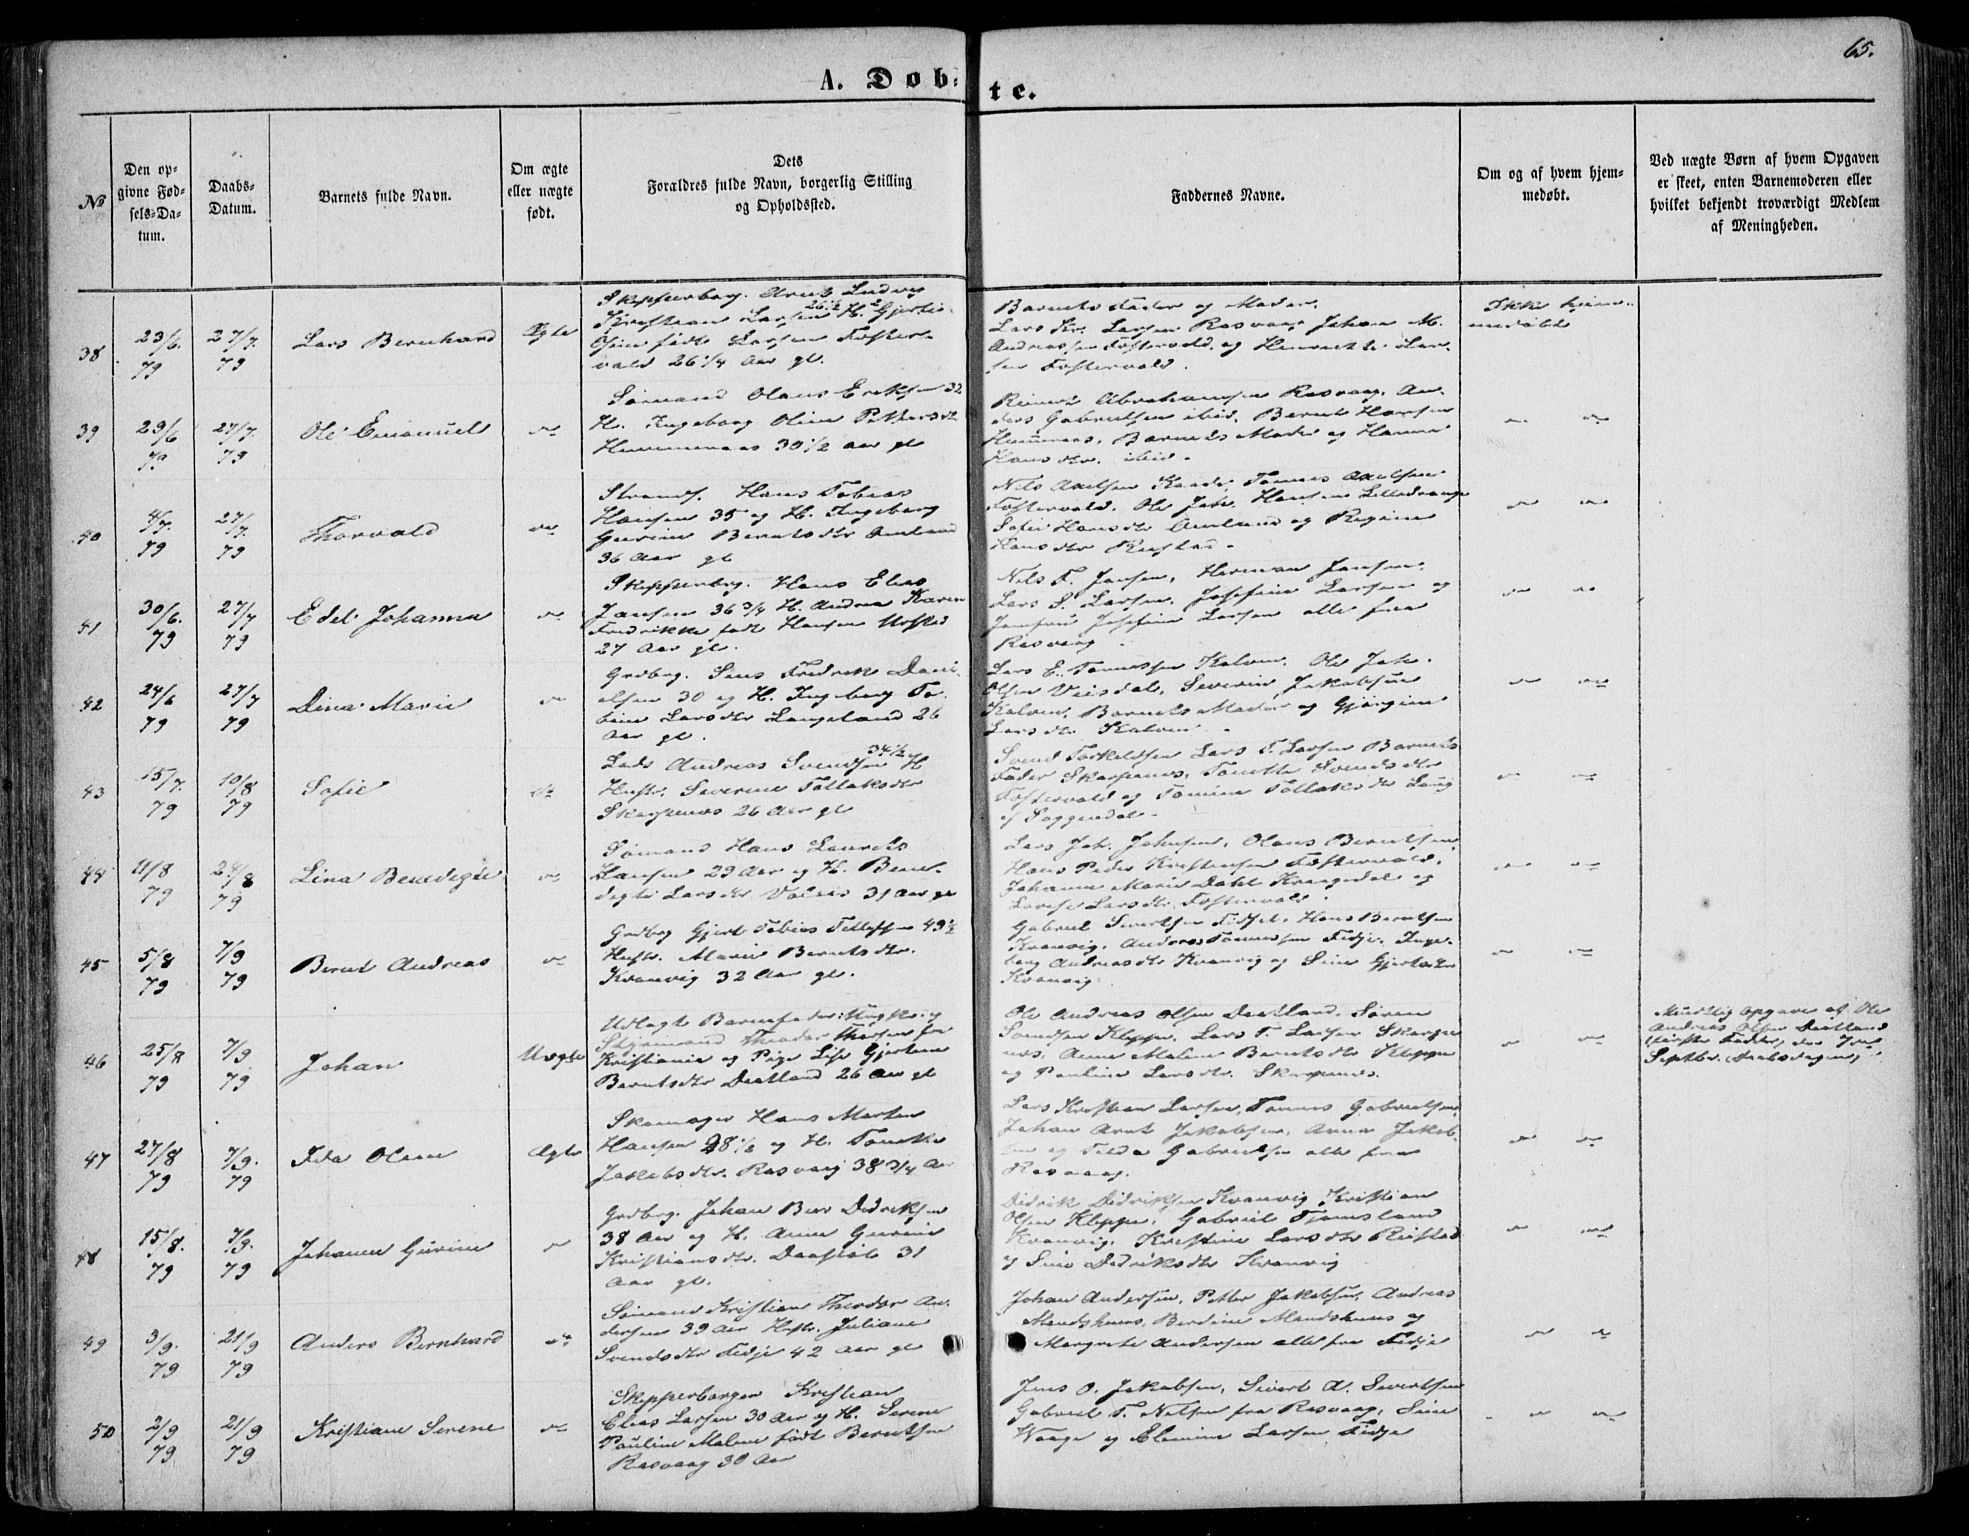 65.
A. Døb-
te.
No
Den op-
givne Fød-
sels-Da-
tum.
Daabs-
Datum.
Barnets fulde Navn.
Om ægte
eller uægte
født.
Dets
Forældres fulde Navn, borgerlig Stilling
og Opholdssted.
Faddernes Navne.
Om og af hvem hjem-
medøbt.
Ved uægte Børn af hvem Opgaven
er skeet, enten Barnemoderen eller
hvilket bekjendt troværdigt Medlem
af Meningheden.
38
23/6.
79
27/7.
79
Lars Bernhard
Ægte
Skipperborg. Arnt Ludvig
Kristian Larsen 26 1/2 H. Gjerti-
født Larsen Foster-
vald 26 1/4 Aar gl.
Barnets Fader og Moder.
Lars Kr. Larsen Rasvaag, Johan M.
Andreassen Fostervold, og Henriette Lar-
sen Fostervold.
Ikke hjem-
medøbt
39
29/6
79
27/7.
79
Ole Emanuel
Sømand Olaus Eriksen 32
H. Ingeborg Oline Pettersdtr
30 1/2 aar gl
Reinert Abrahamsen Rasvaag, An-
ders Gabrielsen ibid, Bernt Hansen
Barnets Moder og Hanna
Hansdtr. ibid.
40
4/7.
79
27/7.
79
Thorvald
Strands. Hans Tobias
Hansen 35 og H. Ingeborg
Gurine Berntsdtr Omland
36 Aar gl
Nils Axelsen Tønnes Axelsen
Fostervold, Ole Jak. Hansen
Sofie Hansdtr Omland og Regine
Hansdtr
41
30/6.
79
27/7
79
Edel Johanna
Skipperbrg. Hans Elias
Jansen 36 3/4 H. Andrea Karen
Fredrikke født Hansen
27 Aar gl.
Nils F. Jansen, Herman Jansen,
Lars S. Larsen, Josefine Larsen og
Josefine Larsen alle fra
Rasvaag.
42
24/6
79
27/7
79
Dina Marie
Grdbrg. Sens Fredrik Dani-
elsen 30 og H. Ingeborg To-
bine Larsdtr Langeland 26
Aar gl.
Lars E. Tønnessen Kalven, Ole Jak.
Olsen Veisdal, Severin Jakobsen
Kalven, Barnets Moder og Gjørgine
Larsdtr. Kalven.
43
15/7.
79
10/8
79
Sofie
Lods Andreas Svendsen 34 1/2 H
Hustr. Severine Tollaksdtr
Skarpnes 26 Aar gl
Svend Torkeldsen Lars T. Larsen Barnets
Fader Skarpnes, Tonette Svendsdtr
Fostervold og Tomine Tollaksdtr
af Soggendal.
44
11/8
79
24/8
79
Lina Benedigte
Sømand Hans Laurits
Hansen 29 Aar og H. Bene-
digte Larsdtr 31 Aar gl
Lars Joh. Johnsen, Olaus Berntsen,
Hans Peder Kristensen Fostervold,
Johanne Marie Dahl og
Larsdtr. Fostervold.
45
5/8
79
7/9
79
Bernt Andreas
Grdbrg Gjert Tobias Tollefsen 49 1/2
Hustr. Marie Berntsdtr.
Kvanvig 32 Aar gl.
Gabriel Sivertsen Fidje, Hans Berntsen
Kvanvig, Anders Tønnessen Fidje, Inge-
borg Andreasdtr Kvanvig og Sine Gjertsdtr
Kvanvig
46
25/8
79
7/9
79
Johan
Uægte
Udlagt Barnefader: Ungk. og
Styrmand Theodor fra
Kristiania og Pige Lise Gjertine
Berntsdtr Daatland 26 Aar gl
Ole Andreas Olsen Daatland, Søren
Svendsen Kleppe, Lars T. Larsen Skarp-
nes, Anne Malene Berntsdtr Kleppe
og Pauline Larsdtr. Skarpnes.
Mundtlig Opgave af Ole
Andreas Olsen Daatland
(første Fadder) den 7de
Septbr. (Daabsdagen)
47
27/8
79
7/9.
79
Ida Oline
Ægte
Skomager Hans Morten
Hansen 28 1/2 og H. Tonette
Jakobsdtr. Rasvaag 38 3/4 Aar
Lars Kristian Larsen, Tønnes Gabrielsen,
Johan Arnt Jakobsen, Anna Jakob-
sen og Tilda Gabrielsen alle fra
Rasvaag.
48
15/8.
79
7/9.
79
Johanne Gurine
Grdbrg. Johan Ber Didriksen
38 Aar og H. Anne Gurine
Kristiansdtr. 31
Aar gl.
Didrik Didriksen Kvanvig Kristian
Olsen Kleppe, Gabriel Tjomsland
Kvanvig, Kristine Larsdtr
og Sine Didriksdtr Kvanvig
49
3/9.
79
21/9
79
Anders Bernhard
Sømand Kristian Theodor An-
dersen 39 Aar Hustr. Juliane
Svendsdtr Fidje 42 Aar gl
Johan Andersen, Petter Jakobsen, Andreas
Berdine og
Margrete Andersen alle fra Fidje
50
2/9
79
21/9
79
Kristiane Serene
Skipperborger Kristian
Elias Larsen 30 Aar og H. Serene
Pauline Malene født Berntsen
Rasvaag 30 Aar
Jens O. Jakobsen, Sivert A. Sivertsen
Gabriel T. Nilsen fra Rasvaag, Sine
Waage og Elomine Larsen Fidje